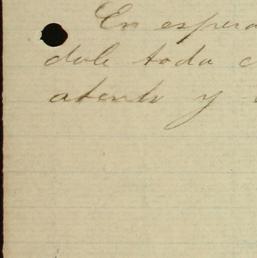 En espera
dole toda c
atento y